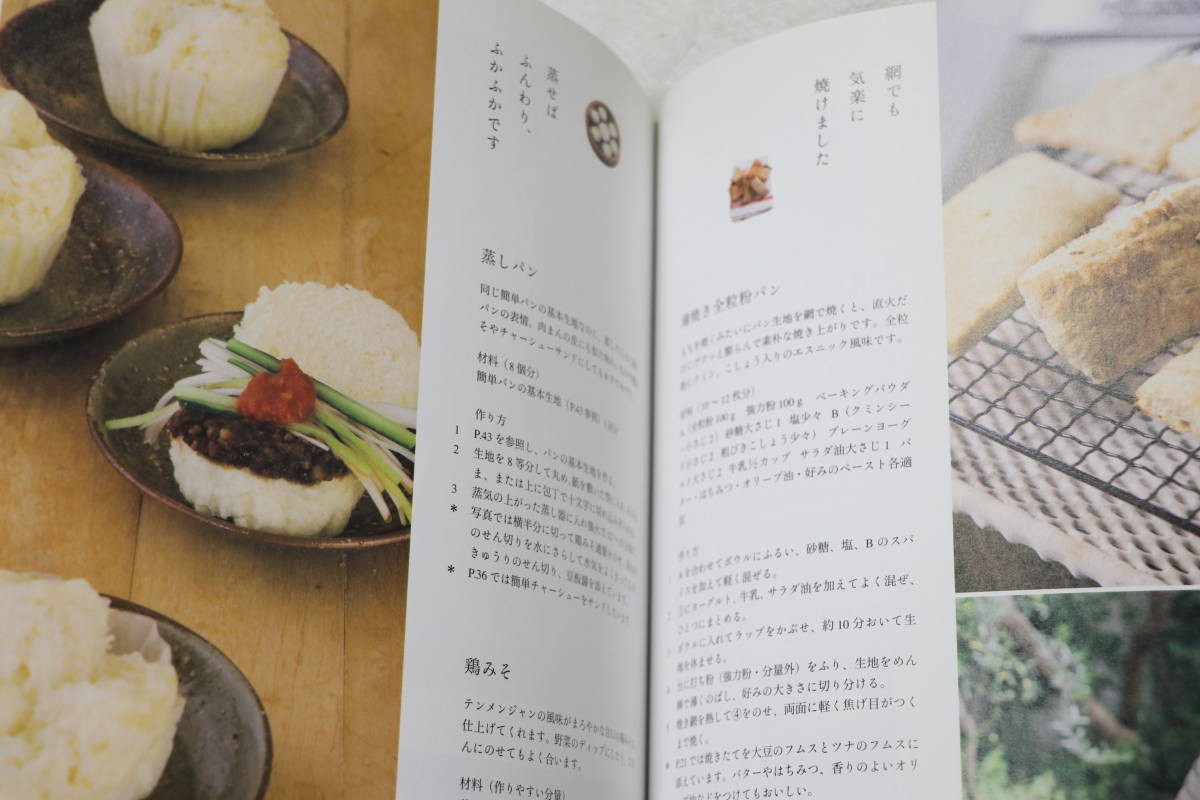 網でも
気楽に
焼けました
焼き全粒粉パン
もちを焼くみたいにパン生地を網で焼くと、直火だ
けにプクッと膨らんで素朴な焼き上がりです。全粒
粉にクミン、こしょう入りのエスニック風味です。
材料（10〜12枚分）
A（全粒粉100g 強力粉100g ベーキングパウダ
小さじ2） 砂糖大さじ1 塩少々 B（クミンシー
粗びきこしょう少々） プレーンヨーグ
ルト大さじ2 牛乳½カップ サラダ油大さじ1 バ
ター・はちみつ・オリーブ油・好みのペースト各適
量
作り方
Aを合わせてボウルにふるい、砂糖、塩、Bのスパ
イスを加えて軽く混ぜる。
2 ①にヨーグルト、牛乳、サラダ油を加えてよく混ぜ、
ひとつにまとめる。
3 ボウルに入れてラップをかぶせ、約10分おいて生
地を休ませる。
4 台に打ち粉（強力粉・分量外）をふり、生地をめん
棒で薄くのばし、好みの大きさに切り分ける。
焼き網を熱して④をのせ、両面に軽く焦げ目がつく
まで焼く。
* P.21では焼きたてを大豆のフムスとツナのフムスに
添えています。バターやはちみつ、香りのよいオリ
ーブ油などをつけてもおいしい。
蒸せば
ふんわり、
ふかふかです
蒸しパン
同じ簡単パンの基本生地なのに、蒸し
パンの表情。肉まんの皮にも似た
そやチャーシューサンドにしても
材料（8個分）
簡単パンの基本生地（P.43参照）
作り方
1 P.43を参照し、パンの基本生地を作る。
2 生地を8等分して丸め、紙を敷いた型に入れ
ま、または上に包丁で十文字に切り込みを
3 蒸気の上がった蒸し器に入れ強火で
* 写真では横半分に切って鶏みそ適量
のせん切りを水にさらして水気をよく
きゅうりのせん切り、豆板醤を添えています。
* P.36では簡単チャーシューをサンドしています。
鶏みそ
テンメンジャンの風味がまろやかな
仕上げてくれます。野菜のディップにしたり、
んにのせてもよく合います。
材料（作りやすい分量）